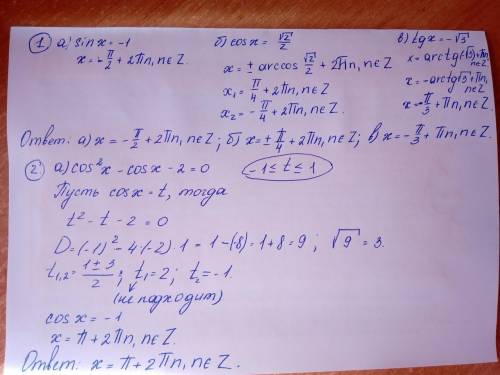 ① а) sin x = -1
x = -π/2 + 2πn, n∈Z
б) cos x = √2/2
x = ± arccos √2/2 + 2πn, n∈Z
x₁ = π/4 + 2πn, n∈Z
x₂ = -π/4 + 2πn, n∈Z.
в) tg x = -√3
x = arctg(-√3) + πn, n∈Z
x = -arctg√3 + πn, n∈Z
x = -π/3 + πn, n∈Z
Ответ: а) x = -π/2 + 2πn, n∈Z; б) x = ± π/4 + 2πn, n∈Z; в) x = -π/3 + πn, n∈Z.
② а) cos²x - cos x - 2 = 0
-1 ≤ t ≤ 1
Пусть cos x = t, тогда
t² - t - 2 = 0
D = (-1)² - 4·(-2)·1 = 1-(-8) = 1+8 = 9; √9 = 3.
t₁,₂ = (1±3)/2; t₁ = 2; t₂ = -1.
(не подходит)
cos x = -1
x = π + 2πn, n∈Z.
Ответ: x = π + 2πn, n∈Z.